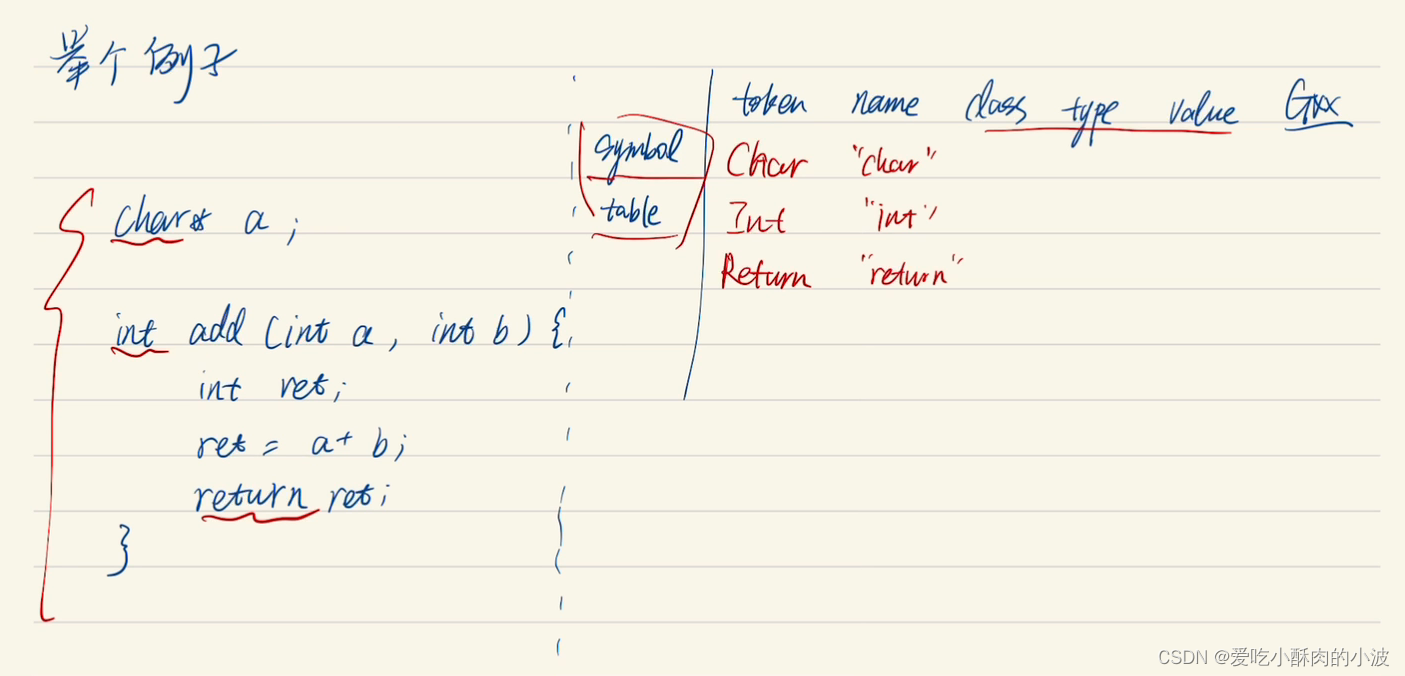 举个例子
char* a;
int add (int a, int b) {
int ret;
ret = a + b;
return ret;
}
symbol
table
token name class type value Gxx
Char "char"
Int "int"
Return "return"
CSDN @爱吃小酥肉的小波